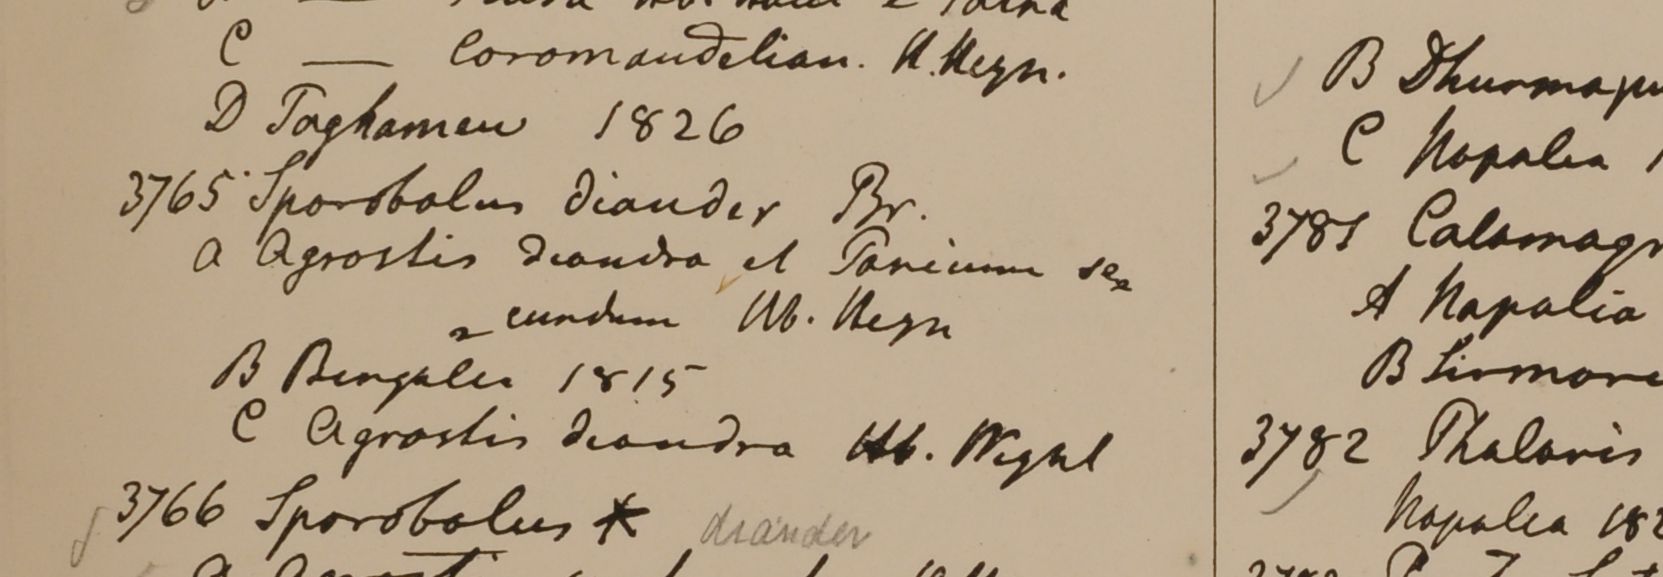 C — Coromandelian. H. Heyn.
D Toghamew 1826
3765 Sporobolus diander Br.
a Agrostis diandra et Panicum se=
= cundum Hb. Heyn
B Bengalea 1815
C Agrostis diandra Hb. Wight
3766 Sporobolus * diander
B Dhurmapu
C Napalea 1
3781 Calamagr
A Napalia
B Sirmore
3782 Phalaris
Napalea 182